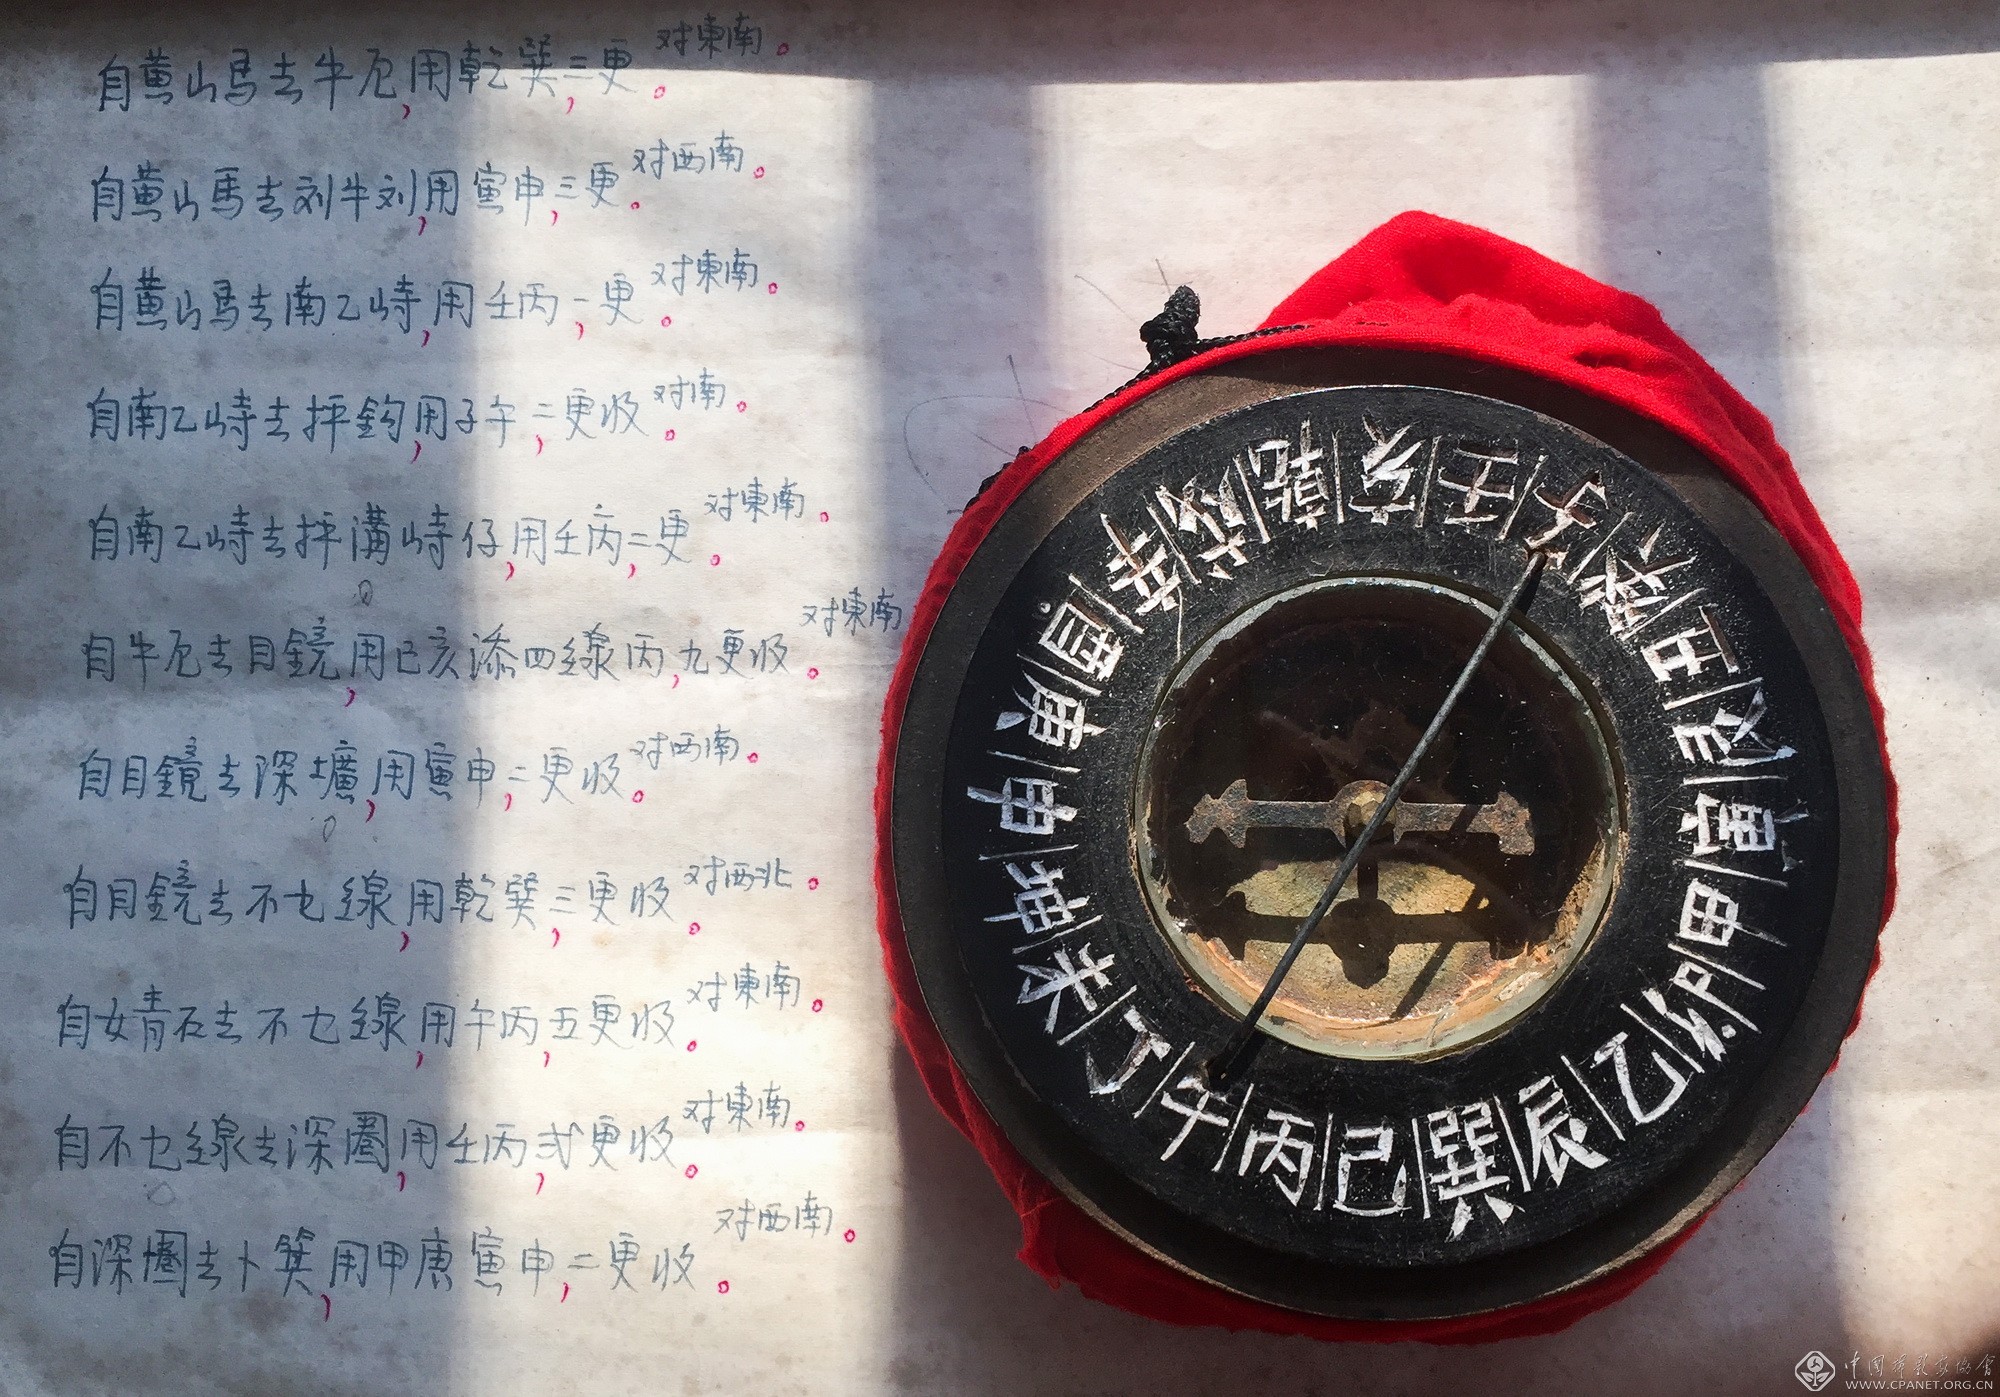 自黄山馬去牛厄,用乾巽,三更。对東南。
自黄山馬去刘牛刘,用寅申,三更。对西南。
自黄山馬去南乙峙,用壬丙,一更。对東南。
自南乙峙去抨鈎,用子午,二更收。对南。
自南乙峙去抨溝峙仔,用壬丙,二更。对東南。
自牛厄去目鏡,用巳亥添四線丙,九更收。对東南
自目鏡去深壙,用寅申,二更收。对西南。
自目鏡去不乜線,用乾巽,三更收。对西北。
自女青石去不乜線,用午丙,五更收。对東南。
自不乜線去深圈,用壬丙,弍更收。对東南。
自深圈去卜箕,用甲庚寅申,二更收。对西南。
子癸丑艮寅甲卯乙辰巽己丙午丁未坤申庚酉辛戍乾亥壬
中国摄影家协会
WWW.CPANET.ORG.CN